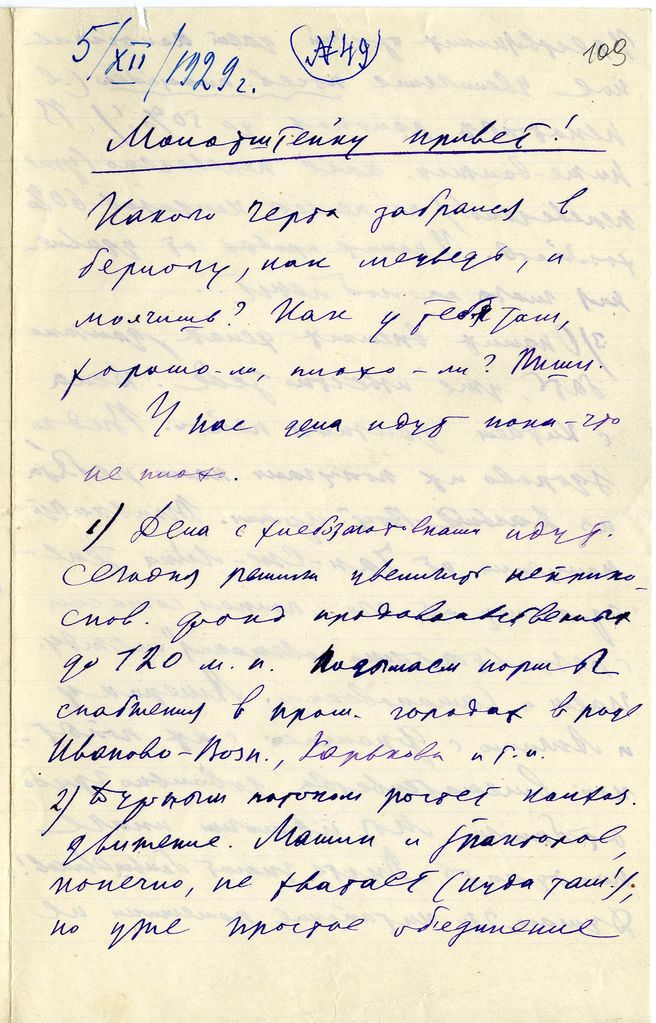 5/XII/1929г.
№49
109
Молотштейну привет!
Какого черта забрался в
берлогу, как медведь, и
молчишь? Как у тебя там,
хорошо-ли, плохо-ли? Пиши.
У нас дела идут пока-что
не плохо.
1) Дела с хлебозаготовками идут.
Сегодня решили увеличить неприко-
снов. фонд продовольственных
до 120 м. п. Подымаем нормы
снабжения в пром. городах в роде
Иваново-Возн., Харькова и т.п.
2) Бурным потоком растет колхоз.
движение. Машин и тракторов,
конечно, не хватает (куда там!),
но уже простое объединение